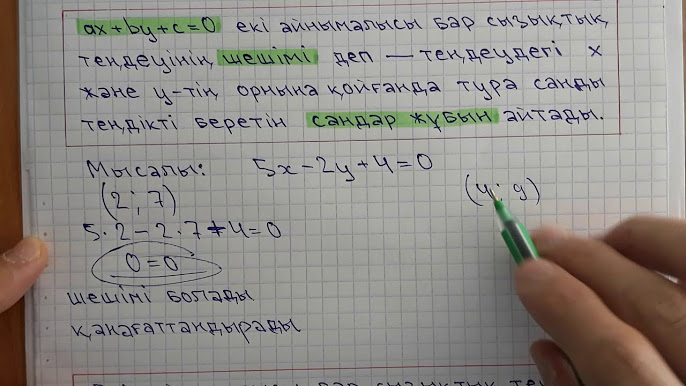 ax+by+c=0 екі айнымалысы бар сызықтық
теңдеуінің шешімі деп — теңдеудегі x
және y-тің орнына қойғанда тура санды
теңдікті беретін сандар жұбын айтады.
Мысалы: 5x-2y+4=0
(2; 7) (4; 9)
5·2-2·7+4=0
0=0
шешімі болады
қанағаттандырады